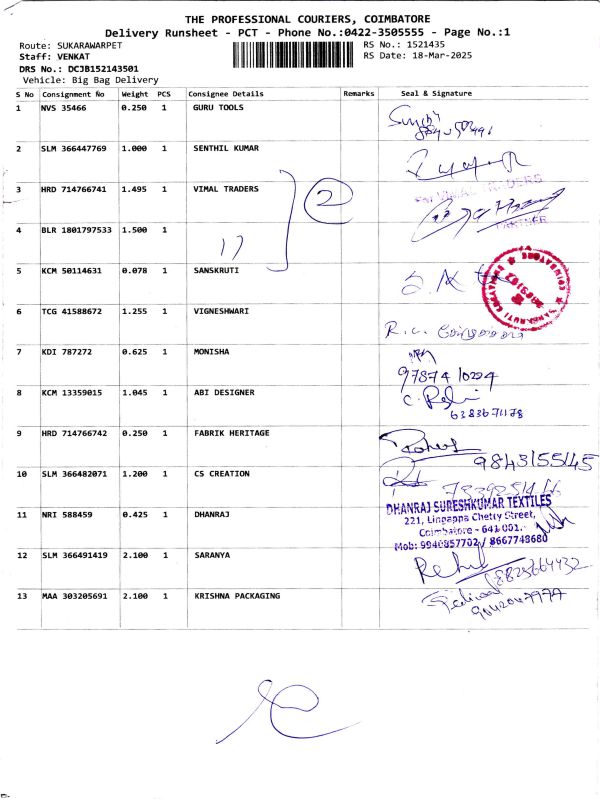 THE PROFESSIONAL COURIERS, COIMBATORE
Delivery Runsheet - PCT - Phone No.:0422-3505555 - Page No.:1
Route: SUKARAWARPET
RS No.: 1521435
Staff: VENKAT
RS Date: 18-Mar-2025
DRS No.: DCJB152143501
Vehicle: Big Bag Delivery
S No Consignment No Weight PCS Consignee Details Remarks Seal & Signature
1 NVS 35466 0.250 1 GURU TOOLS
2 SLM 366447769 1.000 1 SENTHIL KUMAR
3 HRD 714766741 1.495 1 VIMAL TRADERS
2
VIMAL TRADERS
PARTNER
4 BLR 1801797533 1.500 1
17
5 KCM 50114631 0.078 1 SANSKRUTI
6 TCG 41588672 1.255 1 VIGNESHWARI
R.C.
7 KDI 787272 0.625 1 MONISHA
97874 10224
8 KCM 13359015 1.045 1 ABI DESIGNER
6383671178
9 HRD 714766742 0.250 1 FABRIK HERITAGE
9843155145
10 SLM 366482071 1.200 1 CS CREATION
11 NRI 588459 0.425 1 DHANRAJ
DHANRAJ SURESHKUMAR TEXTILES
221, Lingappa Chetty Street,
Coimbatore - 641 001.
Mob: 9940857702 / 8667748680
12 SLM 366491419 2.100 1 SARANYA
8825664432
13 MAA 303205691 2.100 1 KRISHNA PACKAGING